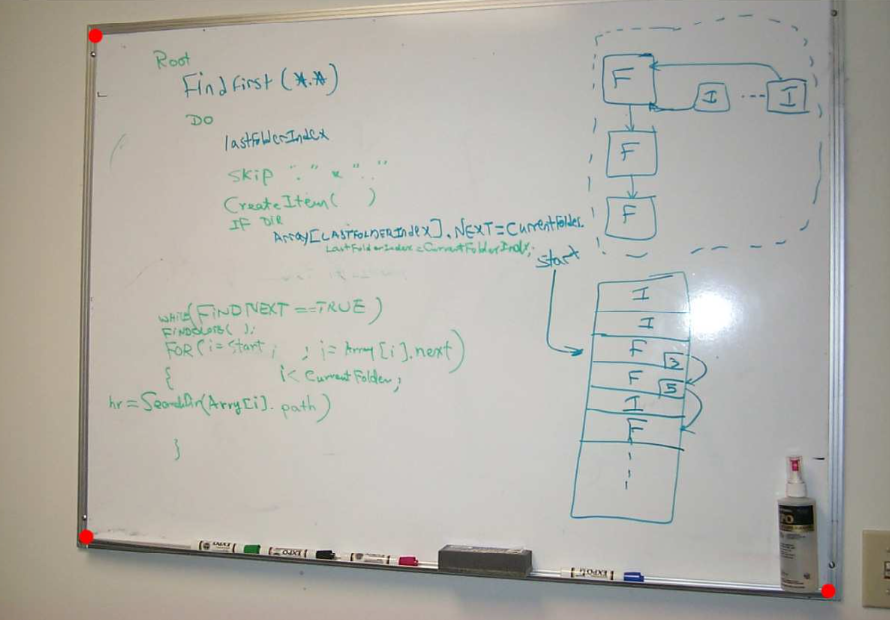 Root
FindFirst(*.*)
DO
lastFolderIndex
Skip "." & ".."
CreateItem( )
IF DIR
Array[LASTFOLDERIndex].NEXT=CurrentFolder.
LastFolderIndex=CurrentFolderIndx;
WHILE(FINDNEXT==TRUE)
FINDCLOSE( );
FOR(i=Start; ; i=Array[i].next)
{ i<CurrentFolder;
hr=SearchDir(Array[i].path)
}
F
I ... I
F
F
Start
I
I
F 3
F 5
I
F
EXPO
EXPO
EXPO
EXPO